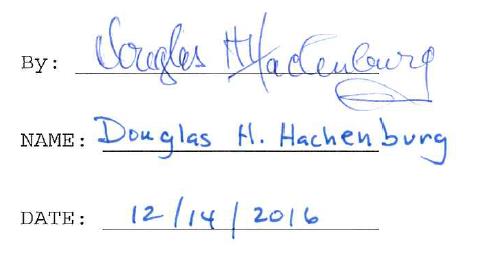 By: Douglas H Hachenburg
NAME: Douglas H. Hachenburg
DATE: 12/14/2016